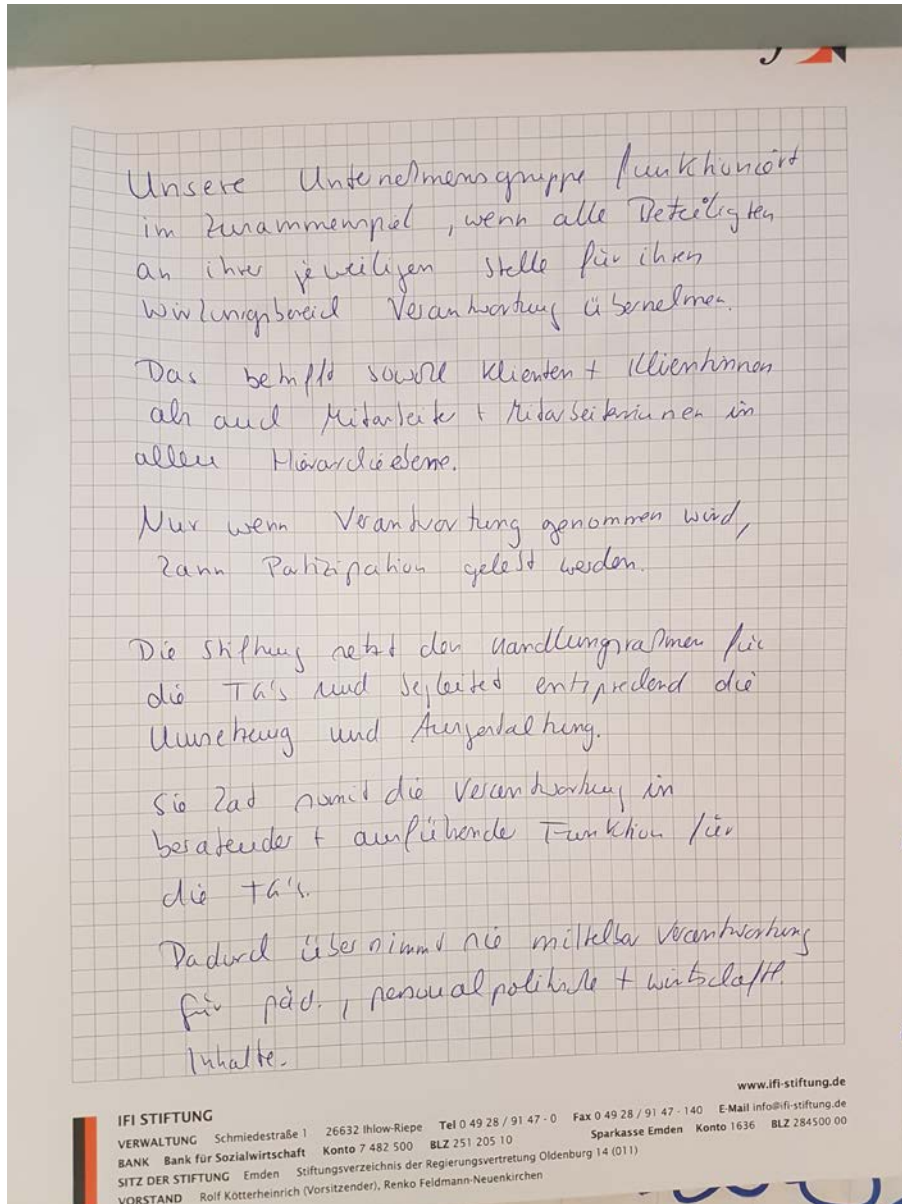 Unsere Unternehmensgruppe funktioniert
im Zusammenspiel, wenn alle Beteiligten
an ihrer jeweiligen Stelle für ihren
Wirkungsbereich Verantwortung übernehmen.
Das betrifft sowohl Klienten + Klientinnen
als auch Mitarbeiter + Mitarbeiterinnen in
allen Hierarchieebene.
Nur wenn Verantwortung genommen wird,
kann Partizipation gelebt werden.
Die Stiftung setzt den Handlungsrahmen für
die TG's und begleitet entsprechend die
Umsetzung und Ausgestaltung.
Sie hat somit die Verantwortung in
beratender + ausführende Funktion für
die TG's.
Dadurch übernimmt sie mittelbar Verantwortung
für päd., personalpolitische + wirtschaftl.
Inhalte.
www.ifi-stiftung.de
IFI STIFTUNG
VERWALTUNG Schmiedestraße 1 26632 Ihlow-Riepe Tel 0 49 28 / 91 47 - 0 Fax 0 49 28 / 91 47 - 140 E-Mail info@ifi-stiftung.de
BANK Bank für Sozialwirtschaft Konto 7 482 500 BLZ 251 205 10 Sparkasse Emden Konto 1636 BLZ 284500 00
SITZ DER STIFTUNG Emden Stiftungsverzeichnis der Regierungsvertretung Oldenburg 14 (011)
VORSTAND Rolf Kötterheinrich (Vorsitzender), Renko Feldmann-Neuenkirchen